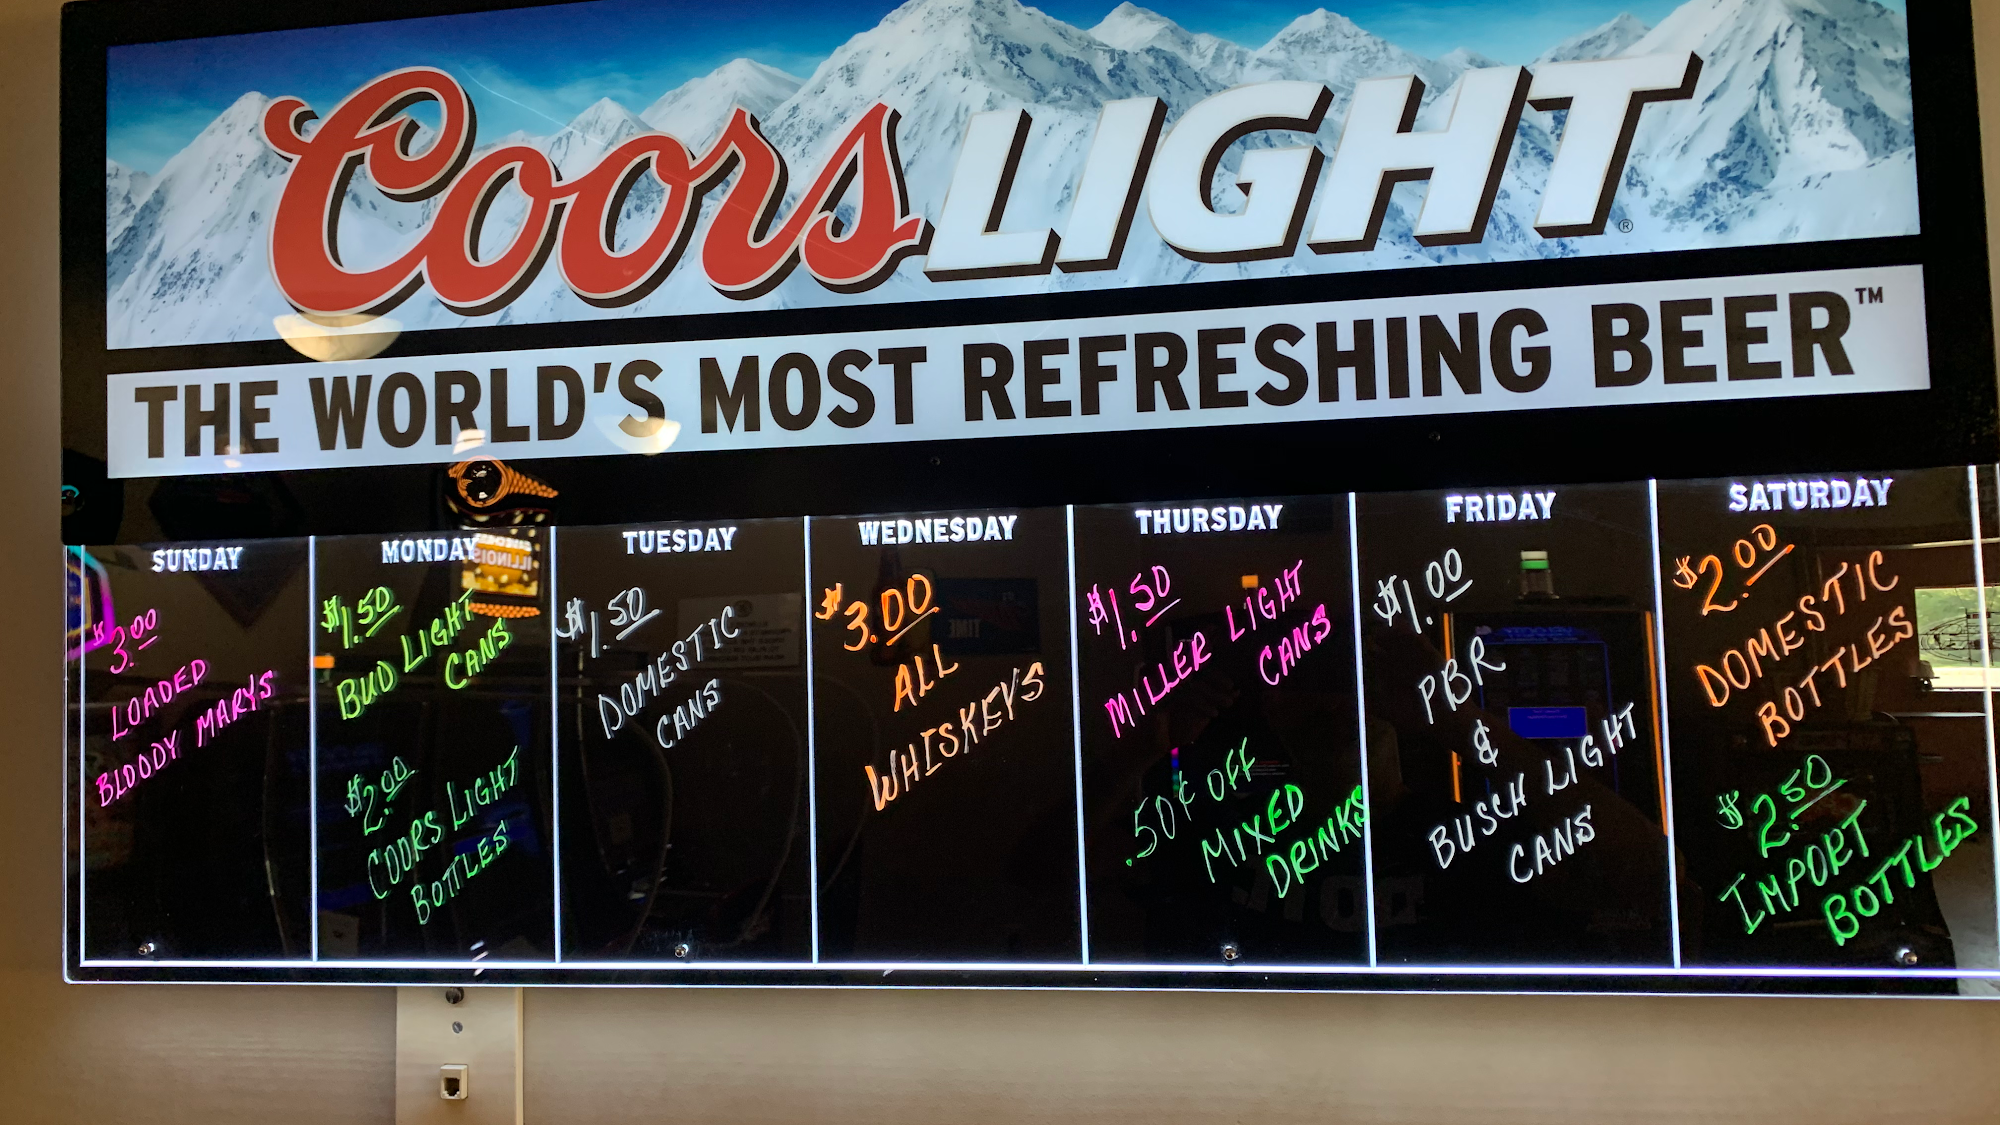 Coors LIGHT®
THE WORLD'S MOST REFRESHING BEER™
SUNDAY
$3.00
LOADED
BLOODY MARYS
MONDAY
$1.50
BUD LIGHT
CANS
$2.00
COORS LIGHT
BOTTLES
TUESDAY
$1.50
DOMESTIC
CANS
WEDNESDAY
$3.00
ALL
WHISKEYS
THURSDAY
$1.50
MILLER LIGHT
CANS
.50¢ OFF
MIXED
DRINKS
FRIDAY
$1.00
PBR
&
BUSCH LIGHT
CANS
SATURDAY
$2.00
DOMESTIC
BOTTLES
$2.50
IMPORT
BOTTLES